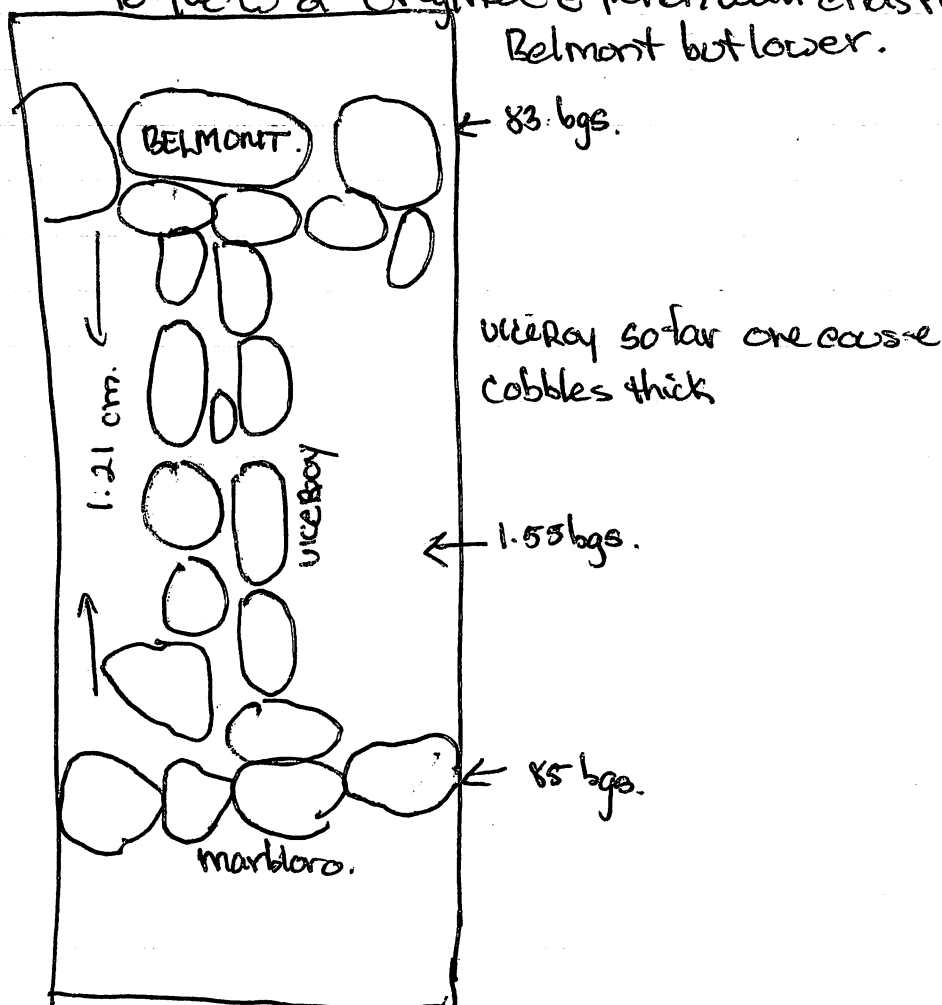 Belmont but lower.
BELMONT.
← 83. bgs.
1.21 cm.
viceRoy so far one couse
cobbles thick
viceRoy
← 1.55 bgs.
← 85 bgs.
marbloro.